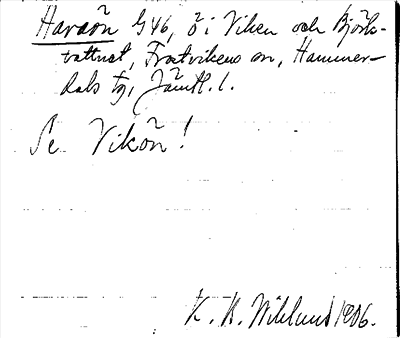 Haraön G46, ö i Viken och Björk-
vattnet, Frostvikens sn, Hammer-
dals tg, Jämtl. l.
Se Vikön!
K. B. Wiklund 1906.